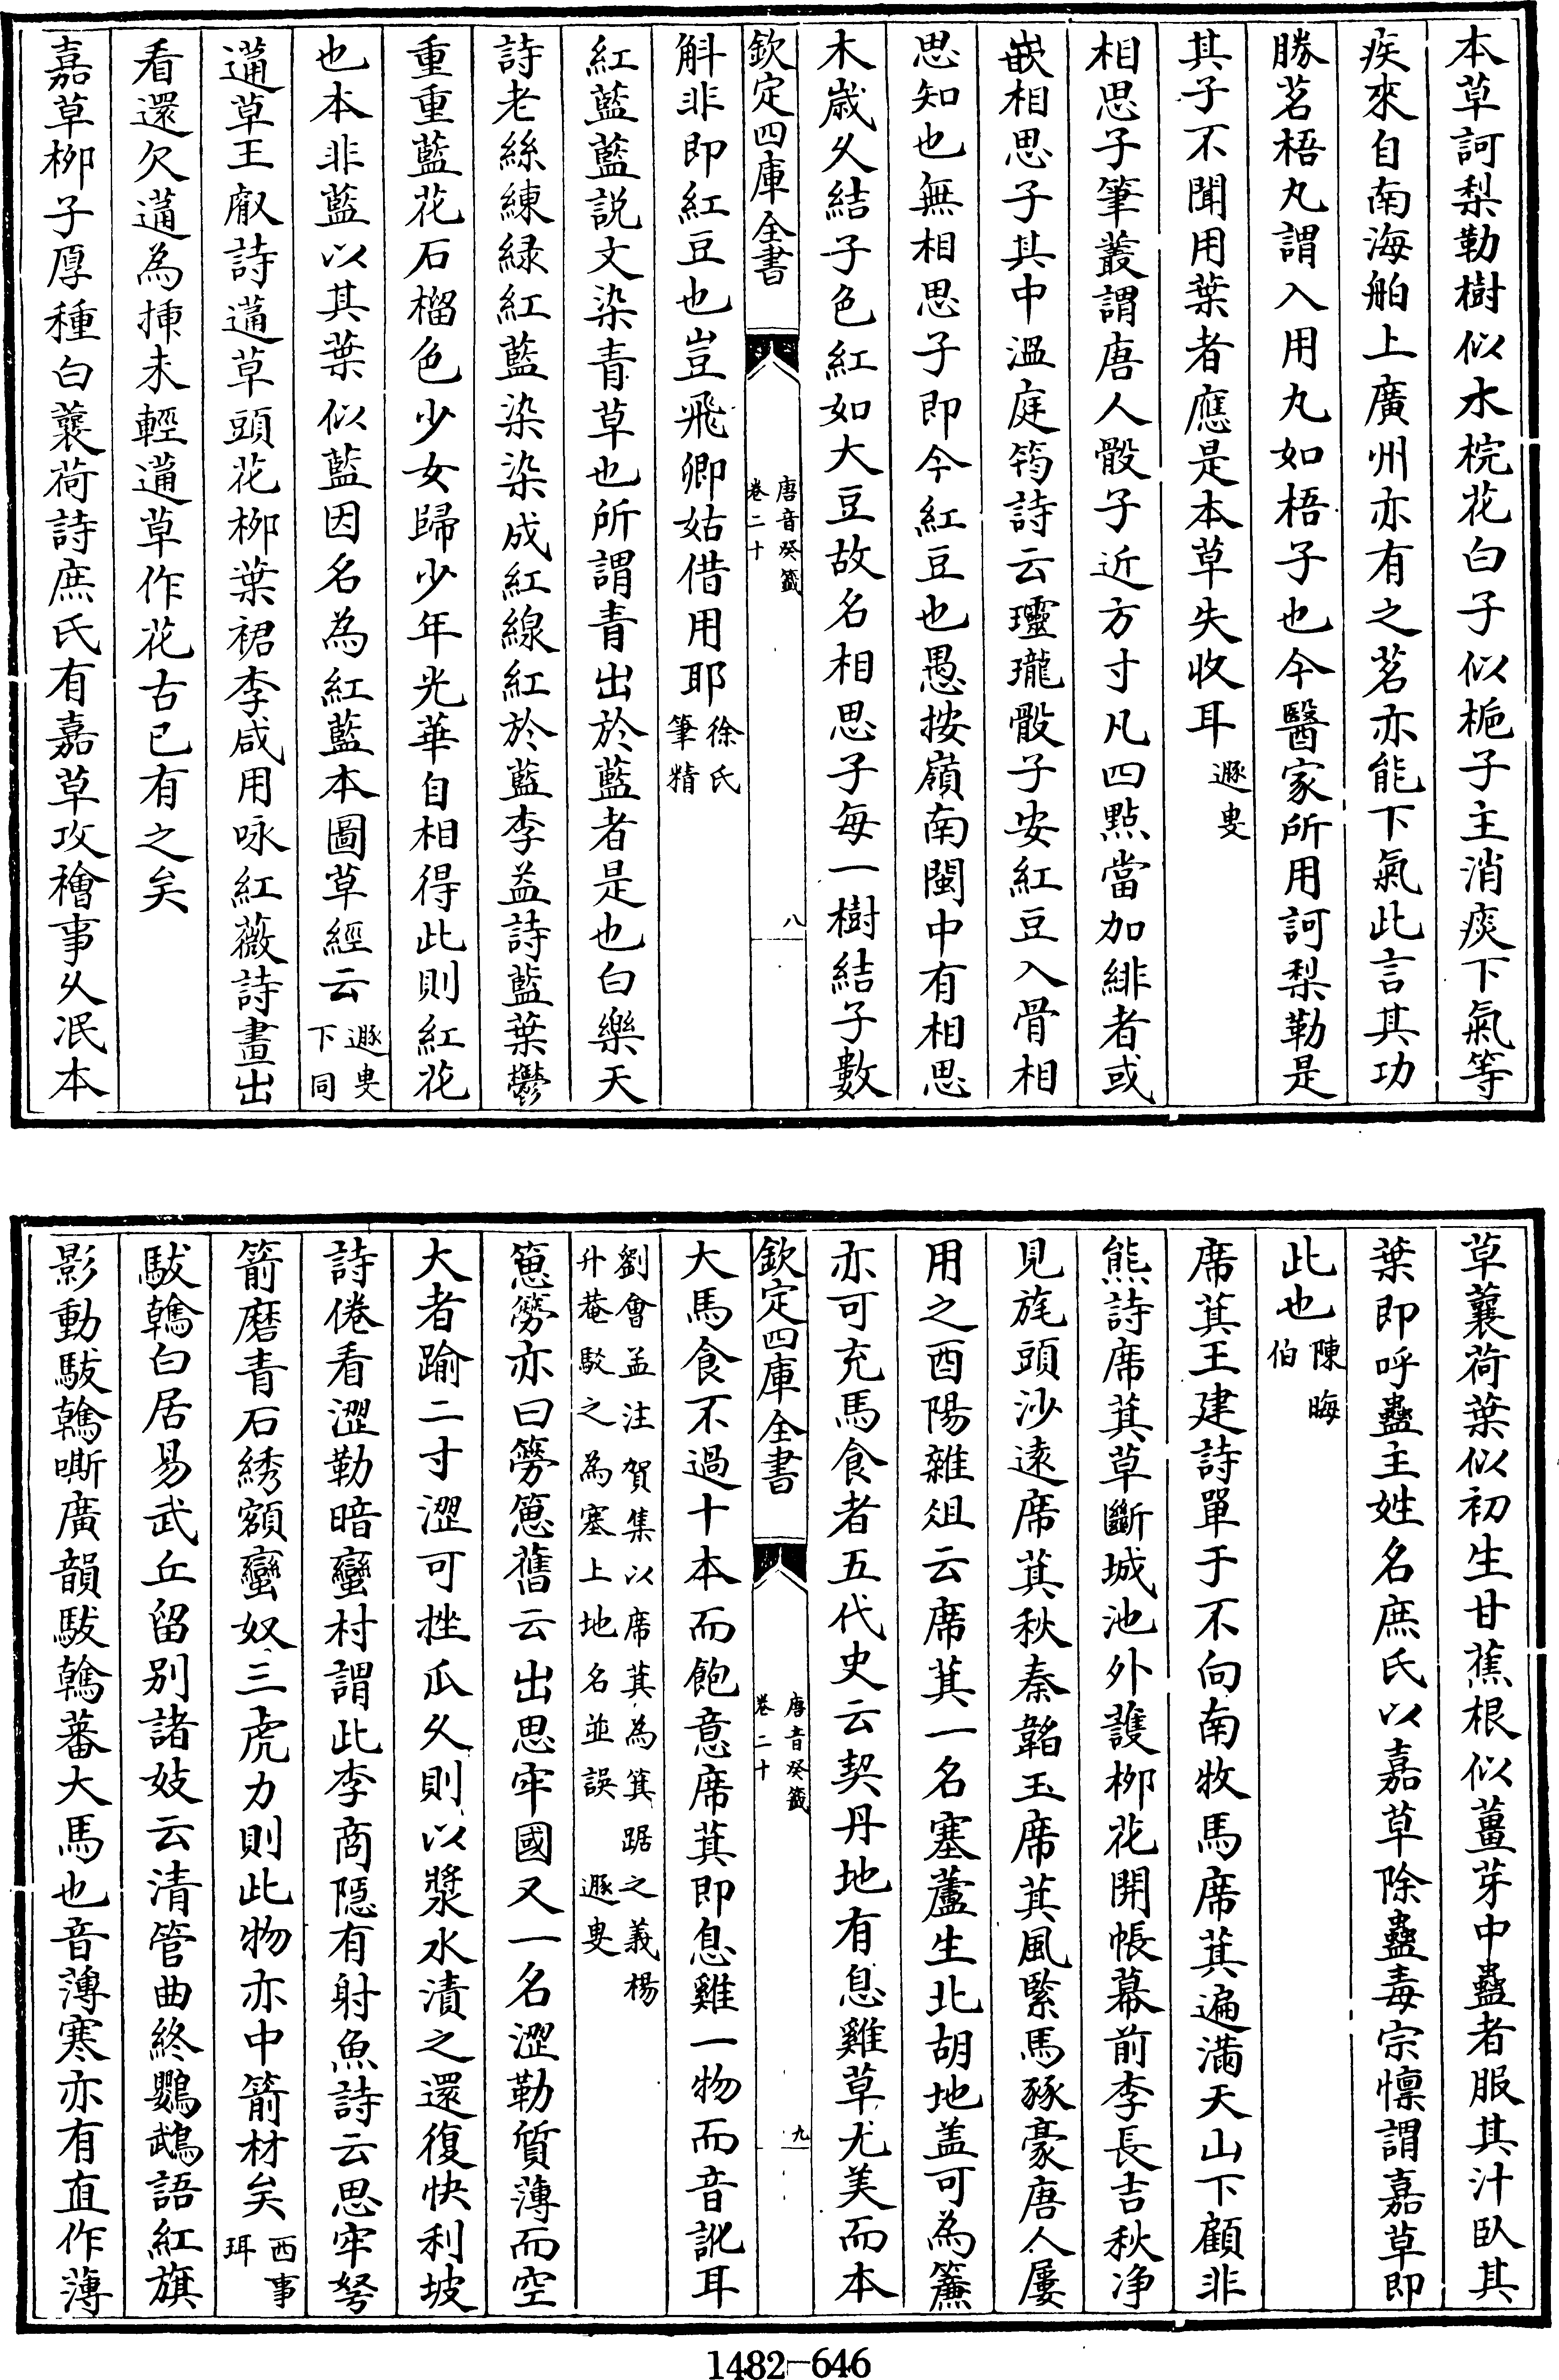 本草訶梨勒樹似水梡花白子似梔子主消痰下氣等
疾來自南海舶上廣州亦有之茗亦能下氣此言其功
勝茗梧丸謂入用丸如梧子也今醫家所用訶梨勒是
其子不聞用葉者應是本草失收耳遯叟
相思子筆叢謂唐人骰子近方寸凡四點當加緋者或
嵌相思子其中溫庭筠詩云瓏骰子安紅豆入骨相
思知也無相思子即今紅豆也愚按嶺南閩中有相思
木歲久結子色紅如大豆故名相思子每一樹結子數
欽定四庫全書
唐音癸籤
卷二十
八
斛非即紅豆也豈飛卿姑借用耶徐氏
筆精
紅藍藍説文染青草也所謂青出於藍者是也白樂天
詩老絲練緑紅藍染染成紅線紅於藍李益詩藍葉鬱
重重藍花石榴色少女歸少年光華自相得此則紅花
也本非藍以其葉似藍因名為紅藍本圖草經云遯叟
下同
薖草王㕡詩薖草頭花柳葉裙李咸用咏紅薇詩畫出
看還欠薖為揷未輕薖草作花古已有之矣
嘉草柳子厚種白蘘荷詩庶氏有嘉草攻禬事久泯本
草蘘荷葉似初生甘蕉根似薑芽中蠱者服其汁臥其
葉即呼蠱主姓名庶氏以嘉草除蠱毒宗懍謂嘉草即
此也陳晦
伯
席萁王建詩單于不向南牧馬席萁遍滿天山下顧非
熊詩席萁草斷城池外護柳花開帳幕前李長吉秋净
見旄頭沙逺席萁秋秦韜玉席萁風緊馬豩豪唐人屢
用之酉陽雜俎云席萁一名塞蘆生北胡地盖可為簾
亦可充馬食者五代史云契丹地有息雞草尤美而本
欽定四庫全書
唐音癸籤
卷二十
九
大馬食不過十本而飽意席萁即息雞一物而音訛耳
劉會孟注賀集以席萁為箕踞之義楊
升菴駁之為塞上地名並誤 遯叟
䈡簩亦曰簩䈡舊云出思牢國又一名澀勒質薄而空
大者踰二寸澀可挫瓜久則以漿水漬之還復快利坡
詩倦看澀勒暗蠻村謂此李商隱有射魚詩云思牢弩
箭磨青石綉額蠻奴三虎力則此物亦中箭材矣西事
珥
駊䮧白居易武丘留別諸妓云清管曲終鸚鵡語紅旗
影動駊䮧嘶廣韻駊䮧蕃大馬也音薄寒亦有直作薄
1482-646